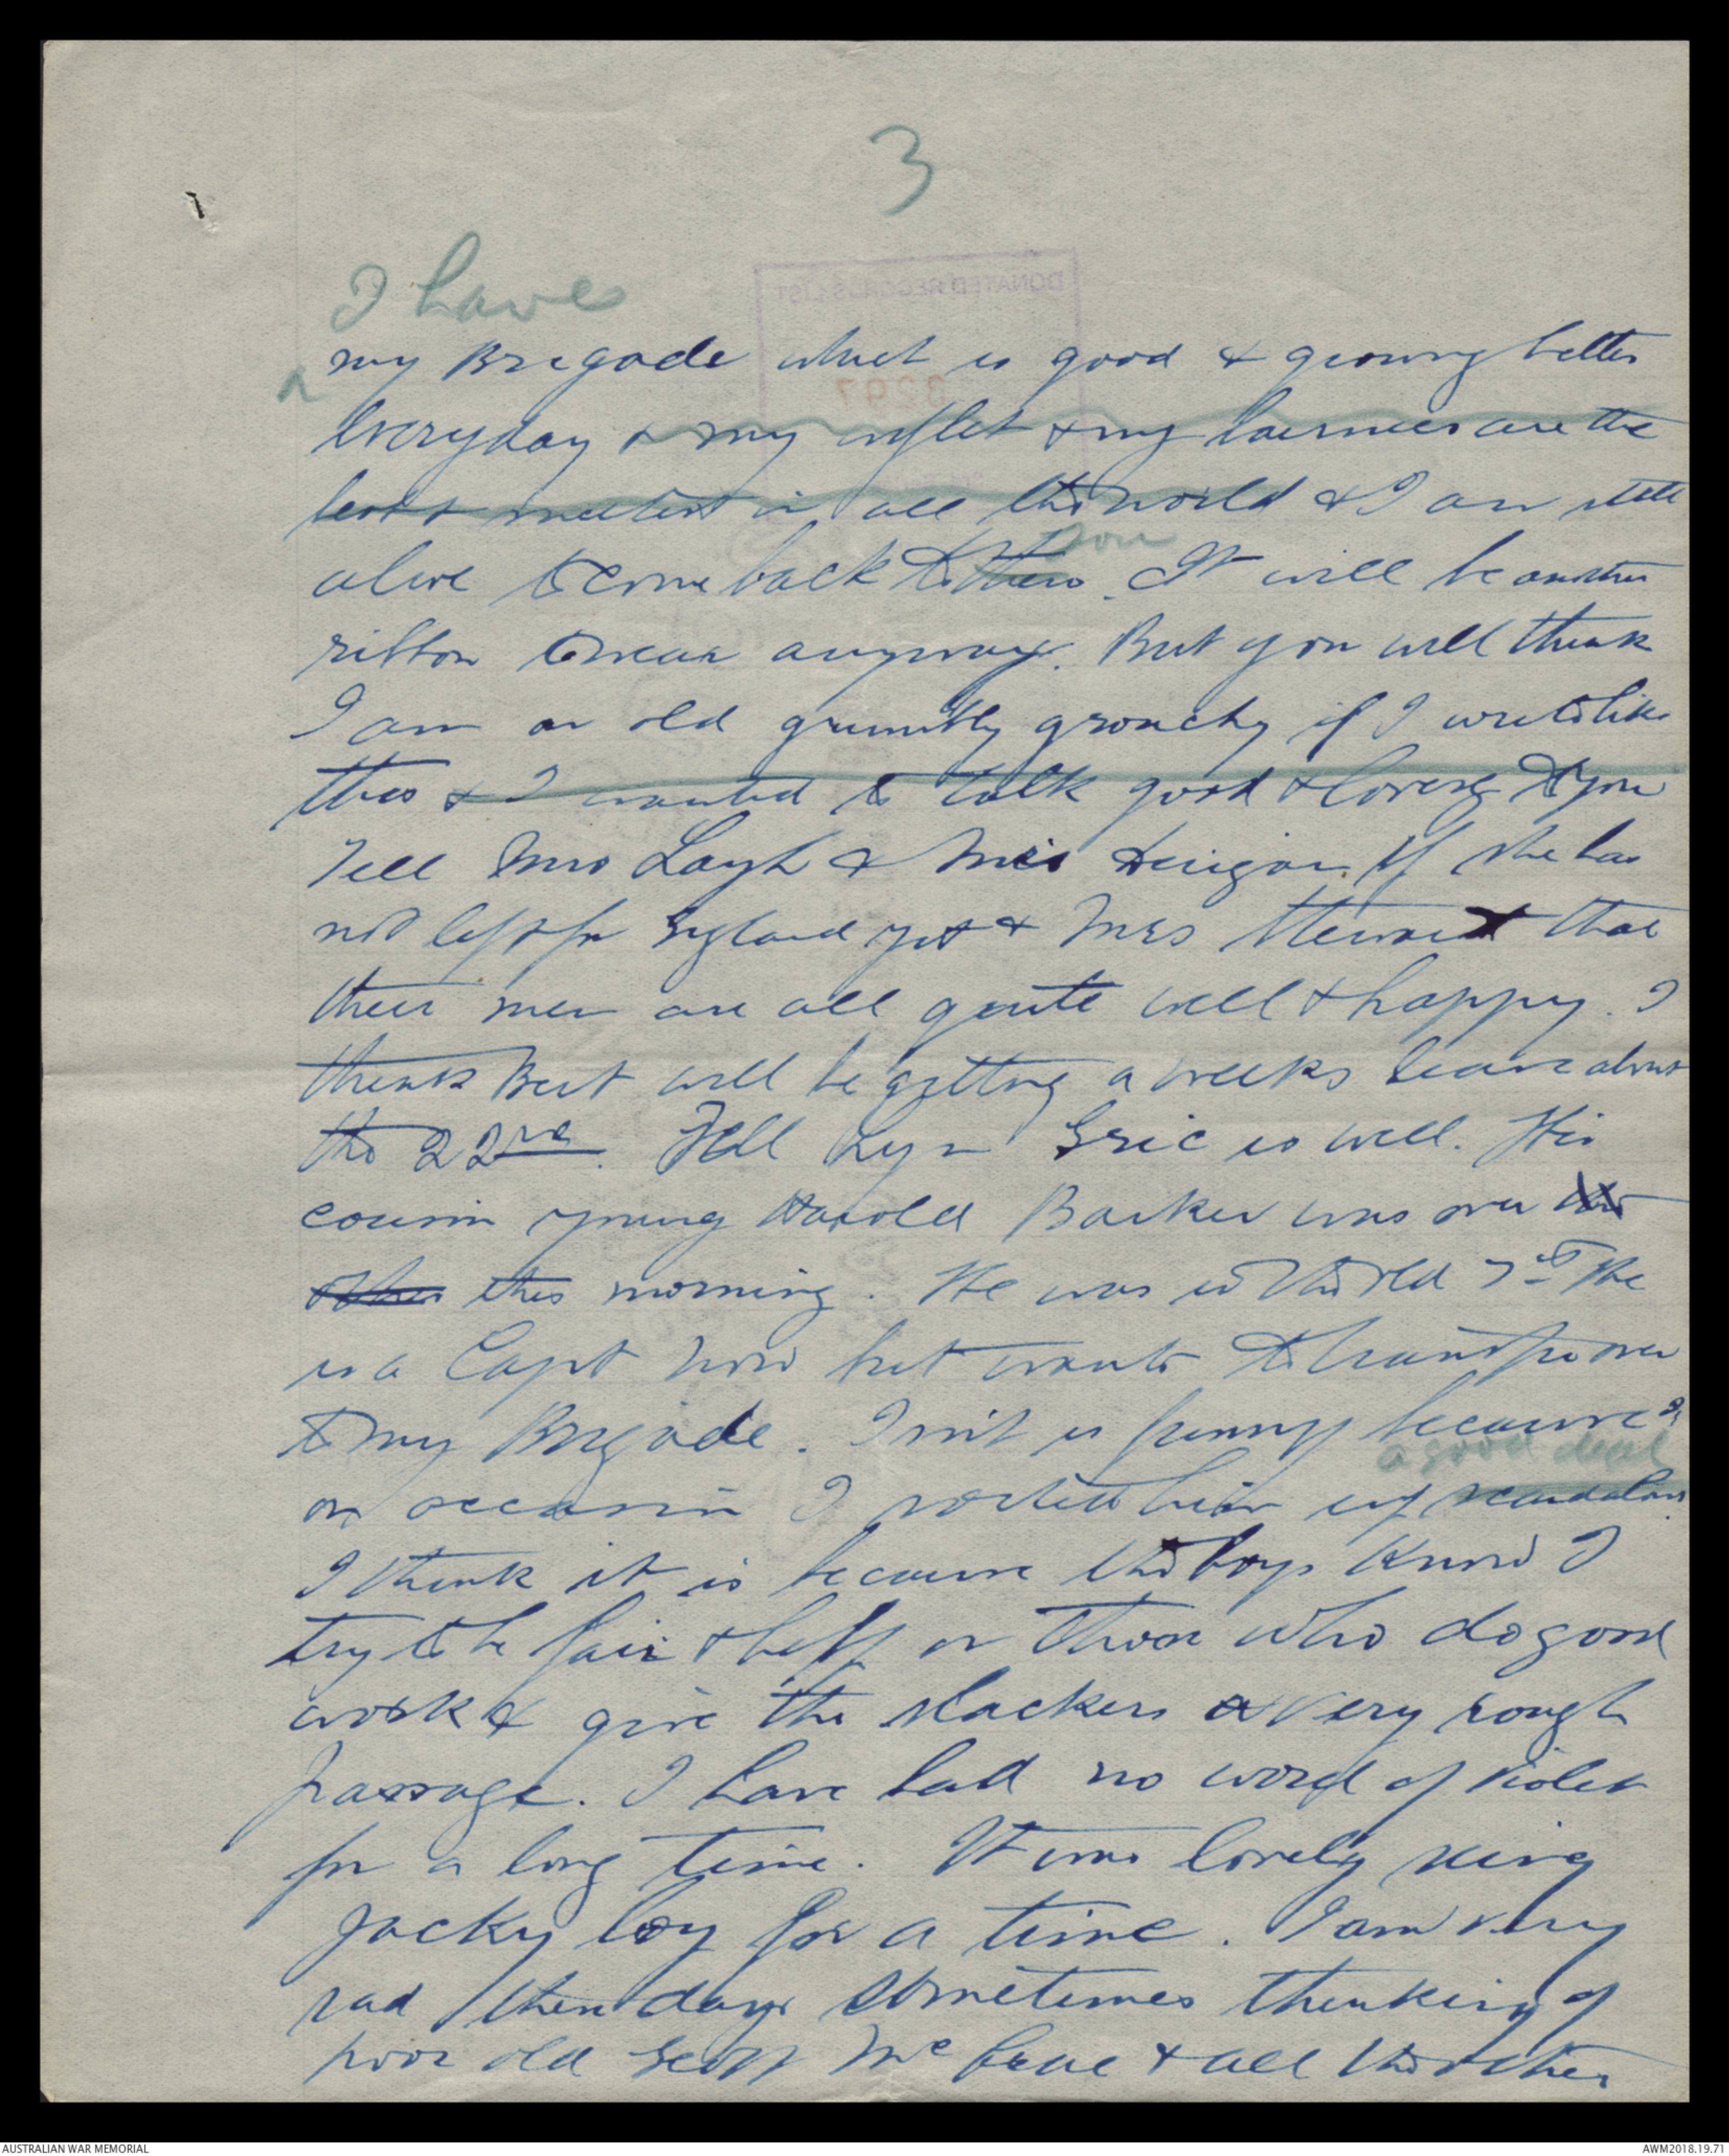 3
I have
my Brigade which is good & growing better
everyday & my wiflet & my bairnies are the
best & sweetest in all the world & I am still
you
alive to come back to them. It will be another
ribbon to wear anyway. But you will think
I am an old grumbly grouchy if I write like
this & I wanted to talk good & loving to you
Tell Mrs Layh & Mrs if she has
not left for England yet & Mrs Stewart that
their men are all quite well & happy. I
think Bert will be getting a weeks leave about
the 22nd. Tell Lyn Eric is well. His
cousin young Harold Barker was over
this morning. He was in the old 7th He
is a Capt now but wants to transfer over
to my Brigade. Isn't it funny because
a good deal
on occasion I him up scandalous
I think it is because the boys know I
try to be fair & help on those who do good
work & give the slackers a very rough
passage. I have had no word of Violet
for a long time. It was lovely seeing
Jacky boy for a time. I am very
sad these days sometimes thinking of
poor old Geoff McCrae & all the other
DONATED RECORDS LIST
3297
AUSTRALIAN WAR MEMORIAL
AWM2018.19.71